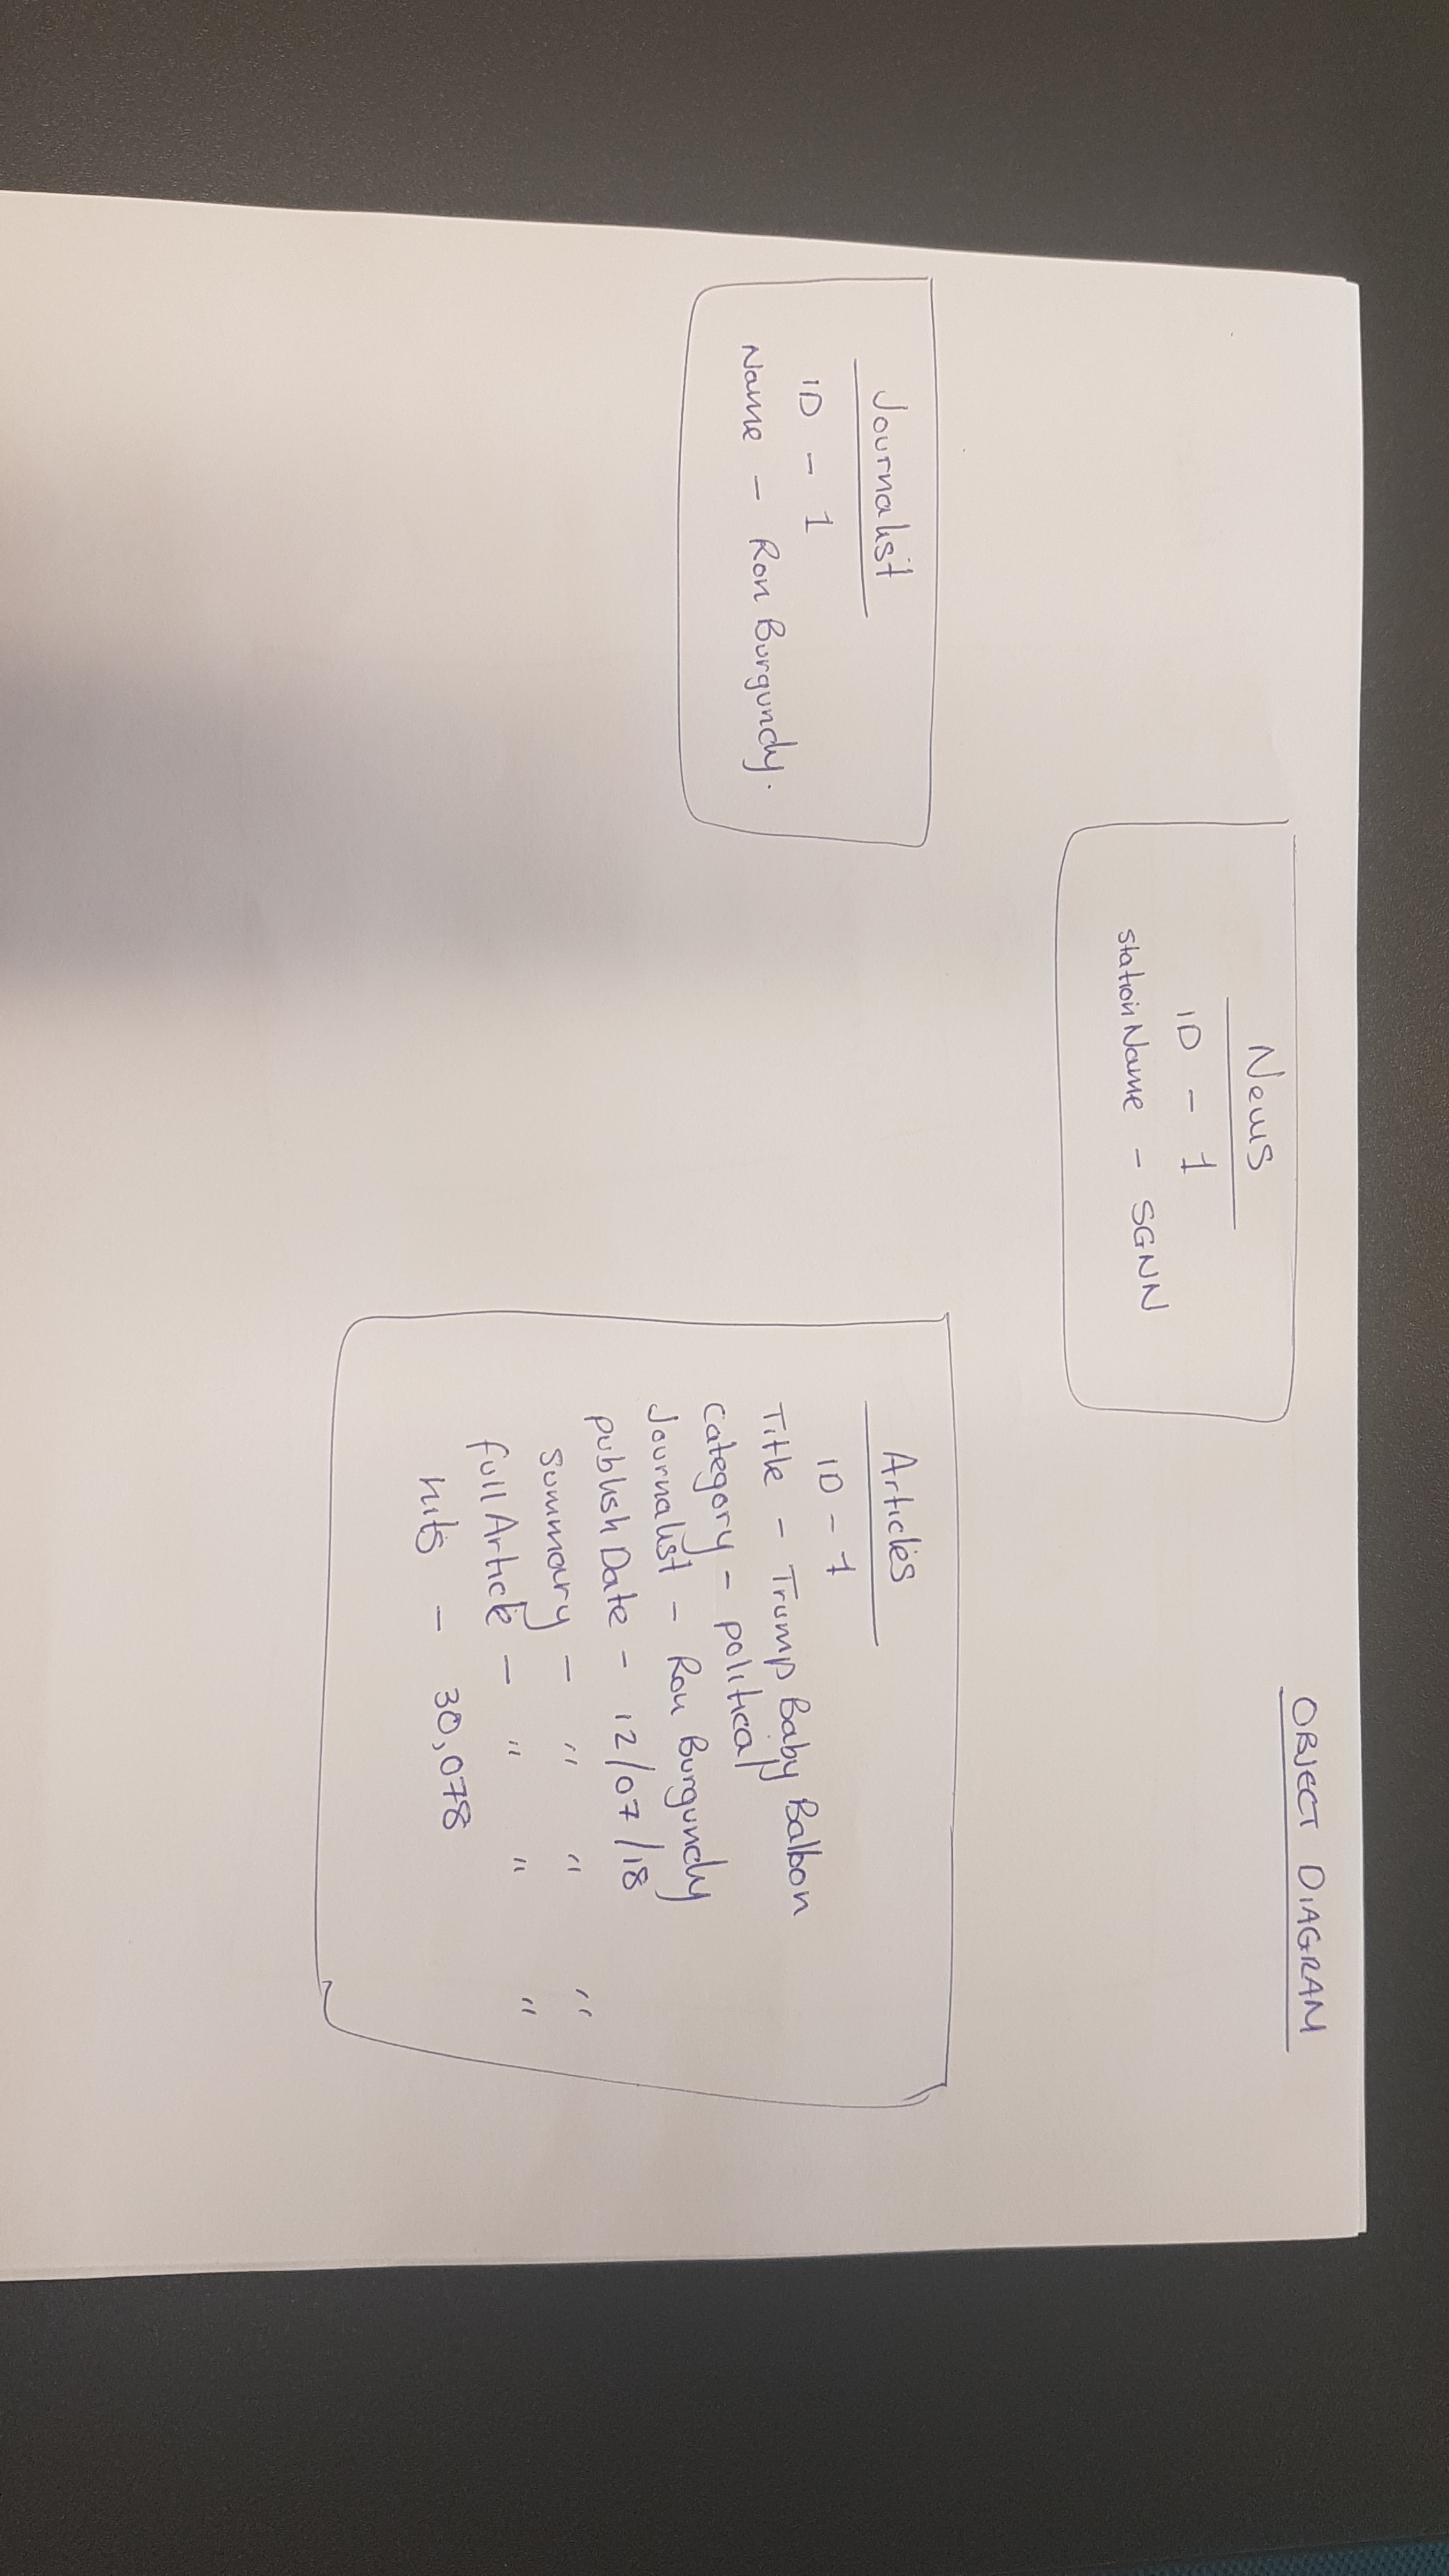 OBJECT DIAGRAM
News
ID - 1
stationName - SGNN
Journalist
ID - 1
Name - Ron Burgundy.
Articles
ID - 1
Title - Trump Baby Balloon
Category - political
Journalist - Ron Burgundy
publish Date - 12/07/18
Summary - " " "
full Article - " " "
hits - 30,078